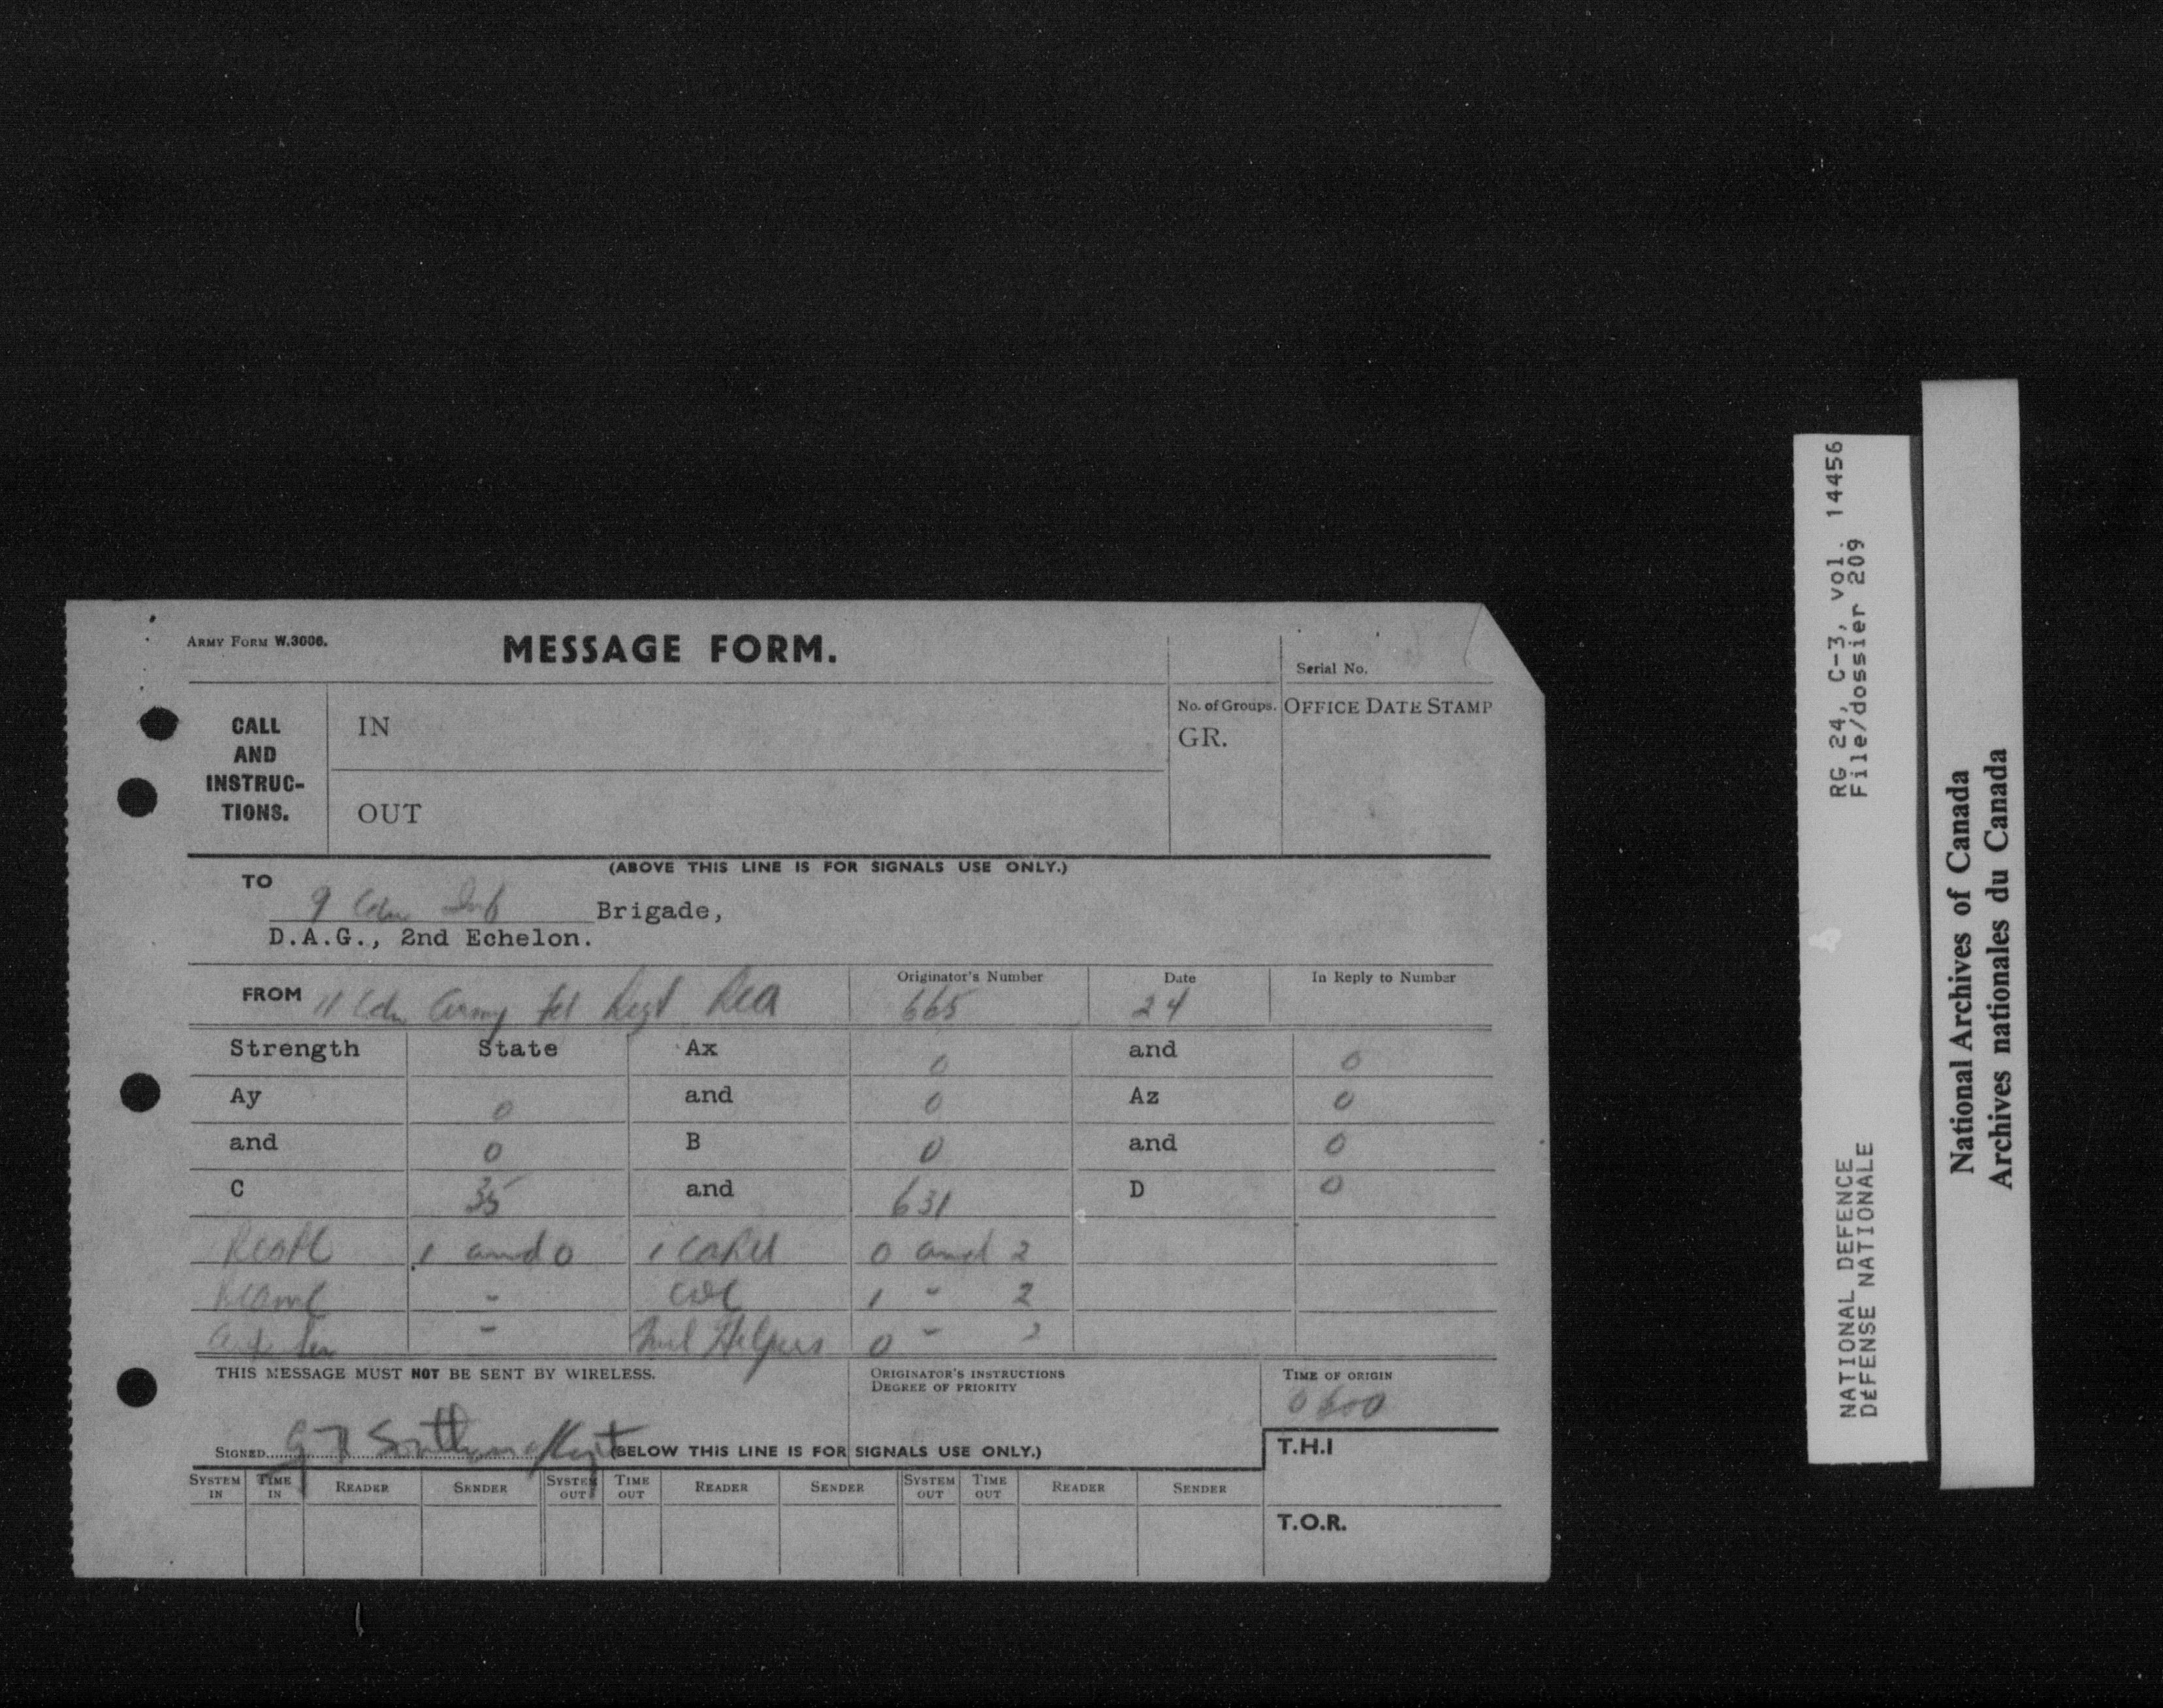 ARMY FORM W.3006.
MESSAGE FORM.
Serial No.
CALL AND INSTRUC- TIONS.
IN
No. of Groups.
GR.
OFFICE DATE STAMP
OUT
(ABOVE THIS LINE IS FOR SIGNALS USE ONLY.)
TO
9 Cdn Inf Brigade,
D.A.G., 2nd Echelon.
FROM 11 Cdn Army Fd Regt RCA
Originator's Number
665
Date
24
In Reply to Number
Strength State Ax 0 and 0
Ay 0 and 0 Az 0
and 0 B 0 and 0
C 35 and 631 D 0
1 and 0 0 and 2
- 1 - 2
- Helpers 0 -
THIS MESSAGE MUST NOT BE SENT BY WIRELESS.
ORIGINATOR'S INSTRUCTIONS
DEGREE OF PRIORITY
TIME OF ORIGIN
0600
SIGNED
(BELOW THIS LINE IS FOR SIGNALS USE ONLY.)
T.H.I
SYSTEM IN TIME IN READER SENDER SYSTEM OUT TIME OUT READER SENDER SYSTEM OUT TIME OUT READER SENDER
T.O.R.
RG 24, C-3, vol. 14456
File/dossier 209
NATIONAL DEFENCE
DÉFENSE NATIONALE
National Archives of Canada
Archives nationales du Canada